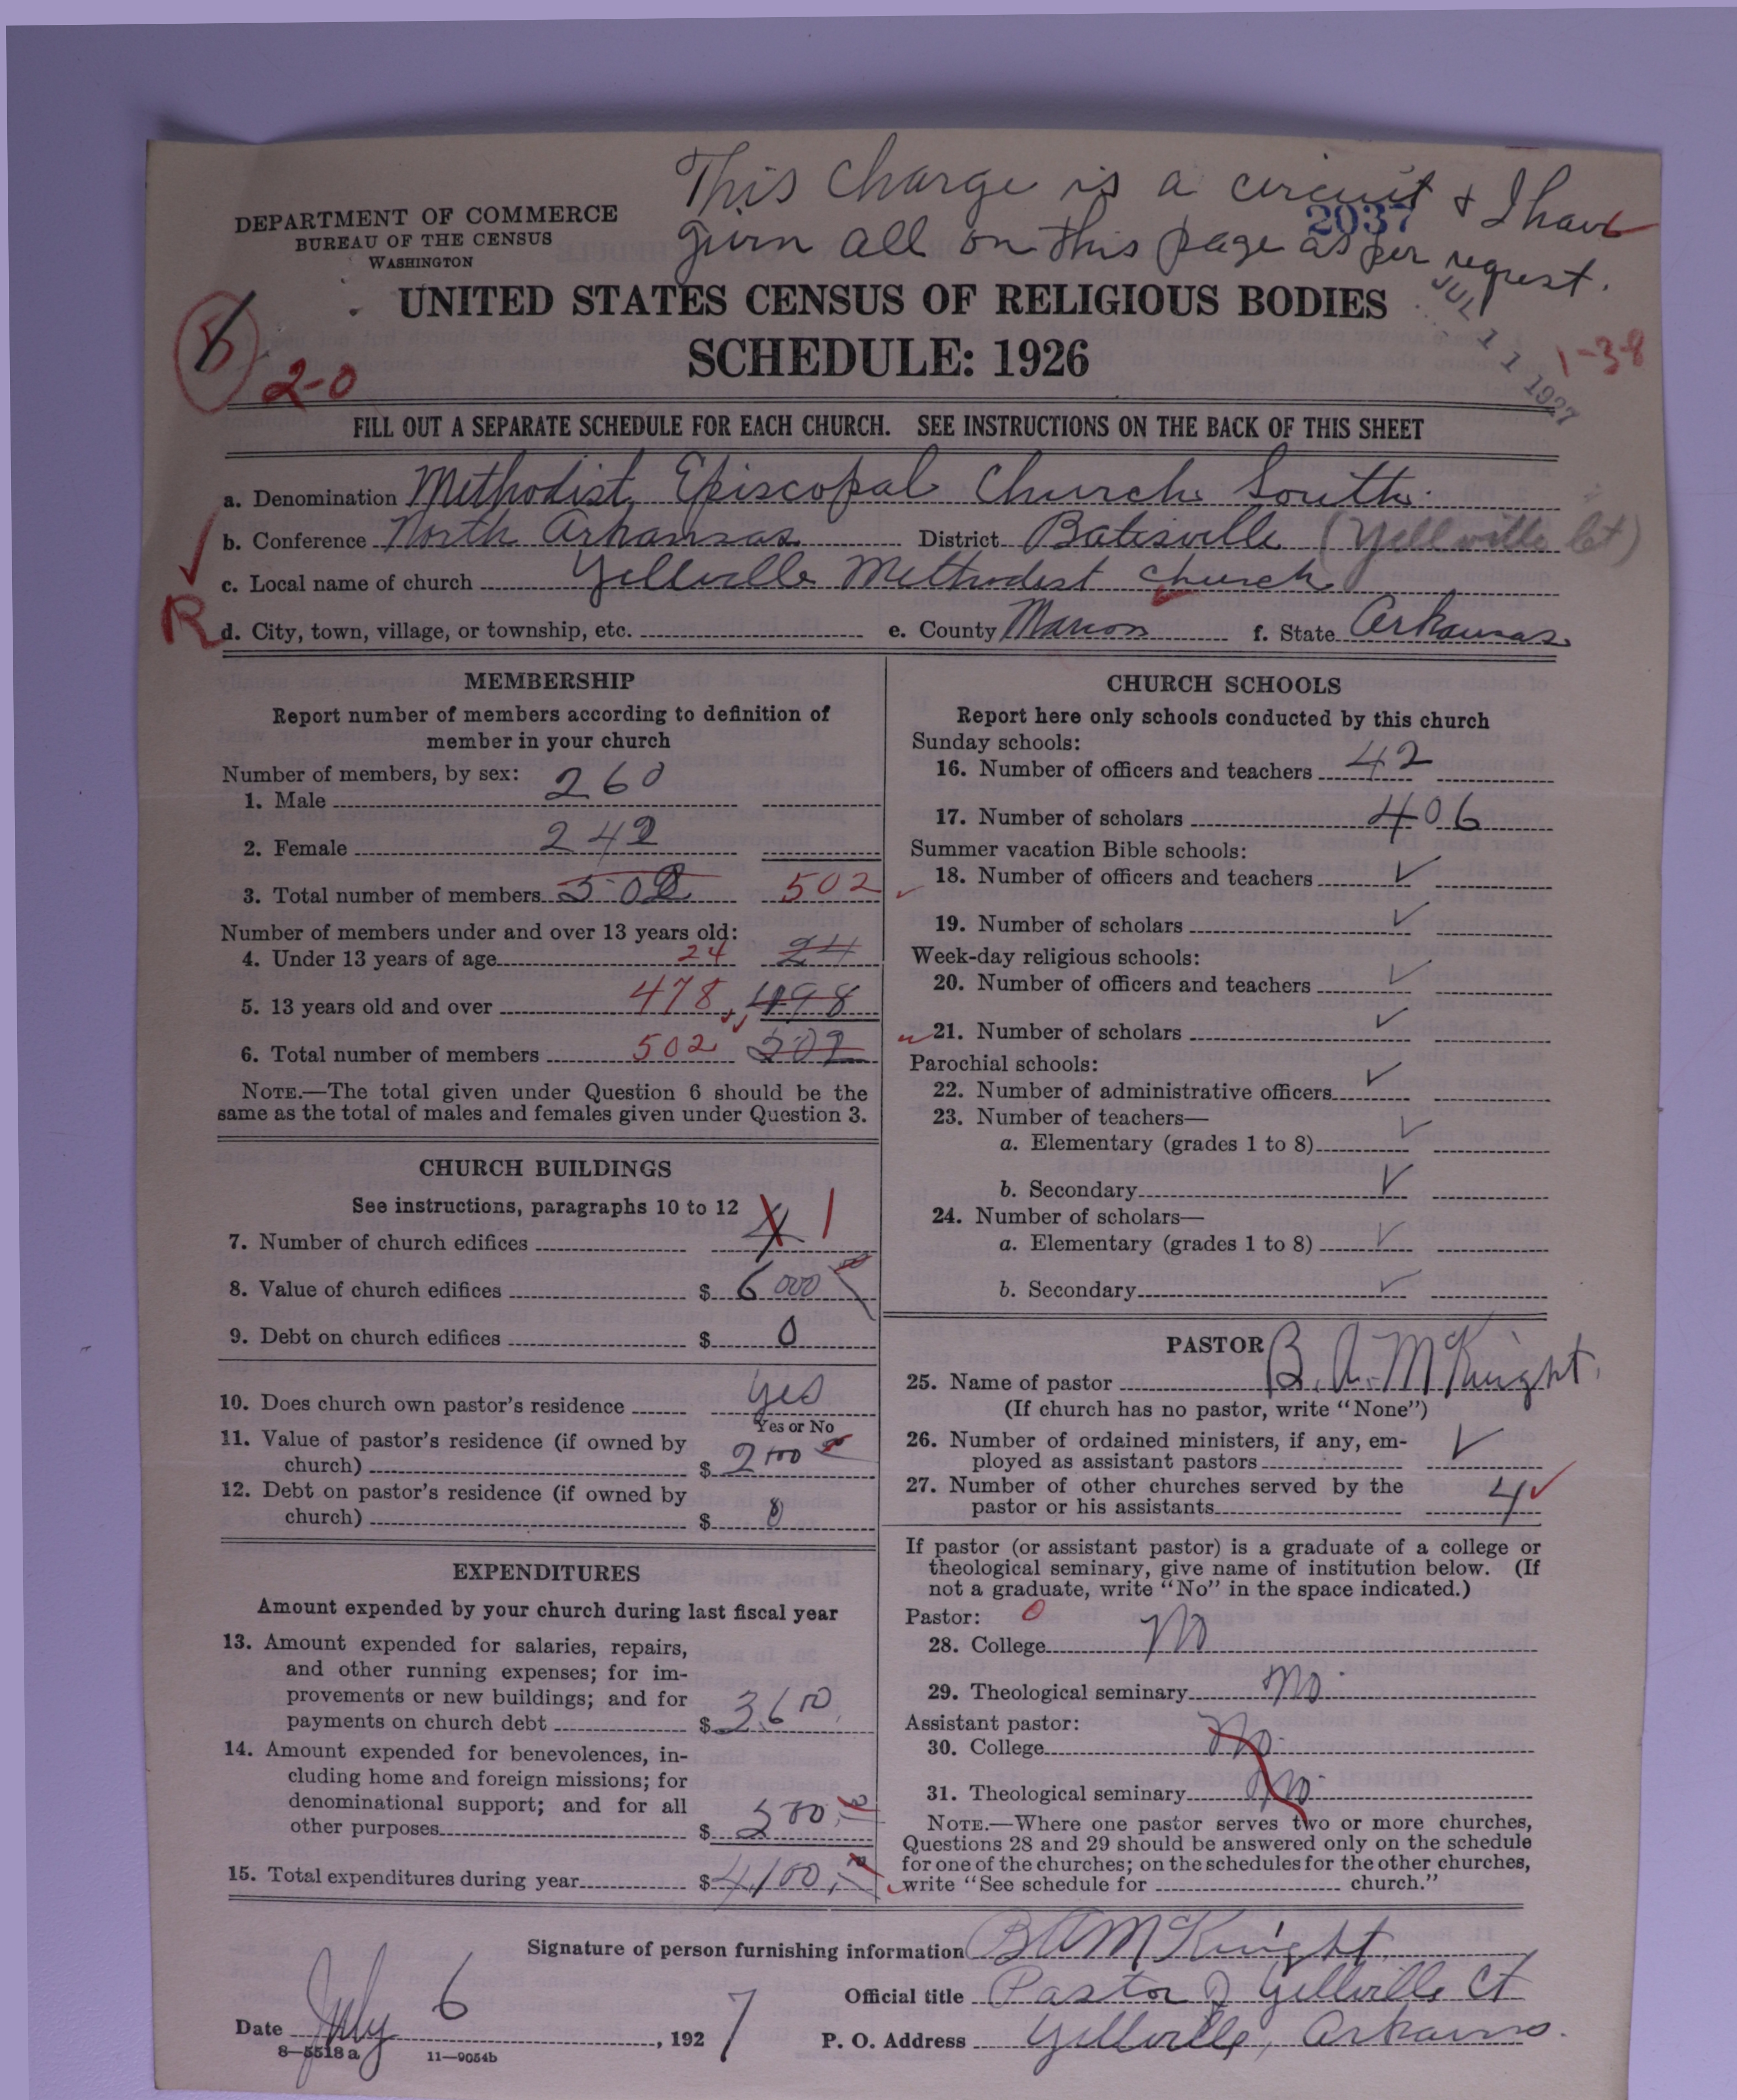 This Charge is a circuit & I have
given all on this page as per request.
2037
DEPARTMENT OF COMMERCE
BUREAU OF THE CENSUS
WASHINGTON
JUL 11 1927
UNITED STATES CENSUS OF RELIGIOUS BODIES
SCHEDULE: 1926
2-0
1-3-8
FILL OUT A SEPARATE SCHEDULE FOR EACH CHURCH. SEE INSTRUCTIONS ON THE BACK OF THIS SHEET
a. Denomination Methodist Episcopal Church South
b. Conference North Arkansas District Batesville (Yellville Ct)
c. Local name of church Yellville Methodist Church
R d. City, town, village, or township, etc. e. County Marion f. State Arkansas
MEMBERSHIP
Report number of members according to definition of
member in your church
Number of members, by sex:
1. Male 260
2. Female 242
3. Total number of members 502 502
Number of members under and over 13 years old:
4. Under 13 years of age 24 24
5. 13 years old and over 478 498
6. Total number of members 502 502
NOTE.—The total given under Question 6 should be the
same as the total of males and females given under Question 3.
CHURCH BUILDINGS
See instructions, paragraphs 10 to 12
7. Number of church edifices 4 1
8. Value of church edifices $ 6000 00
9. Debt on church edifices $ 0
10. Does church own pastor's residence yes
Yes or No
11. Value of pastor's residence (if owned by
church) $
12. Debt on pastor's residence (if owned by
church) $ 0
EXPENDITURES
Amount expended by your church during last fiscal year
13. Amount expended for salaries, repairs,
and other running expenses; for im-
provements or new buildings; and for
payments on church debt $ 3600
14. Amount expended for benevolences, in-
cluding home and foreign missions; for
denominational support; and for all
other purposes $ 500.00
15. Total expenditures during year $ 4,100.00
CHURCH SCHOOLS
Report here only schools conducted by this church
Sunday schools:
16. Number of officers and teachers 42
17. Number of scholars 406
Summer vacation Bible schools:
18. Number of officers and teachers ✓
19. Number of scholars ✓
Week-day religious schools:
20. Number of officers and teachers ✓
21. Number of scholars ✓
Parochial schools:
22. Number of administrative officers ✓
23. Number of teachers—
a. Elementary (grades 1 to 8) ✓
b. Secondary ✓
24. Number of scholars—
a. Elementary (grades 1 to 8) ✓
b. Secondary ✓
PASTOR
25. Name of pastor B. A. McKnight.
(If church has no pastor, write "None")
26. Number of ordained ministers, if any, em-
ployed as assistant pastors ✓
27. Number of other churches served by the
pastor or his assistants 4 ✓
If pastor (or assistant pastor) is a graduate of a college or
theological seminary, give name of institution below. (If
not a graduate, write "No" in the space indicated.)
Pastor: 0
28. College No
29. Theological seminary No
Assistant pastor:
30. College No
31. Theological seminary No
NOTE.—Where one pastor serves two or more churches,
Questions 28 and 29 should be answered only on the schedule
for one of the churches; on the schedules for the other churches,
write "See schedule for church."
Signature of person furnishing information B A McKnight
Official title Pastor of Yellville Ct
Date July 6, 1927 P. O. Address Yellville, Arkansas.
8—5518 a 11—9054b